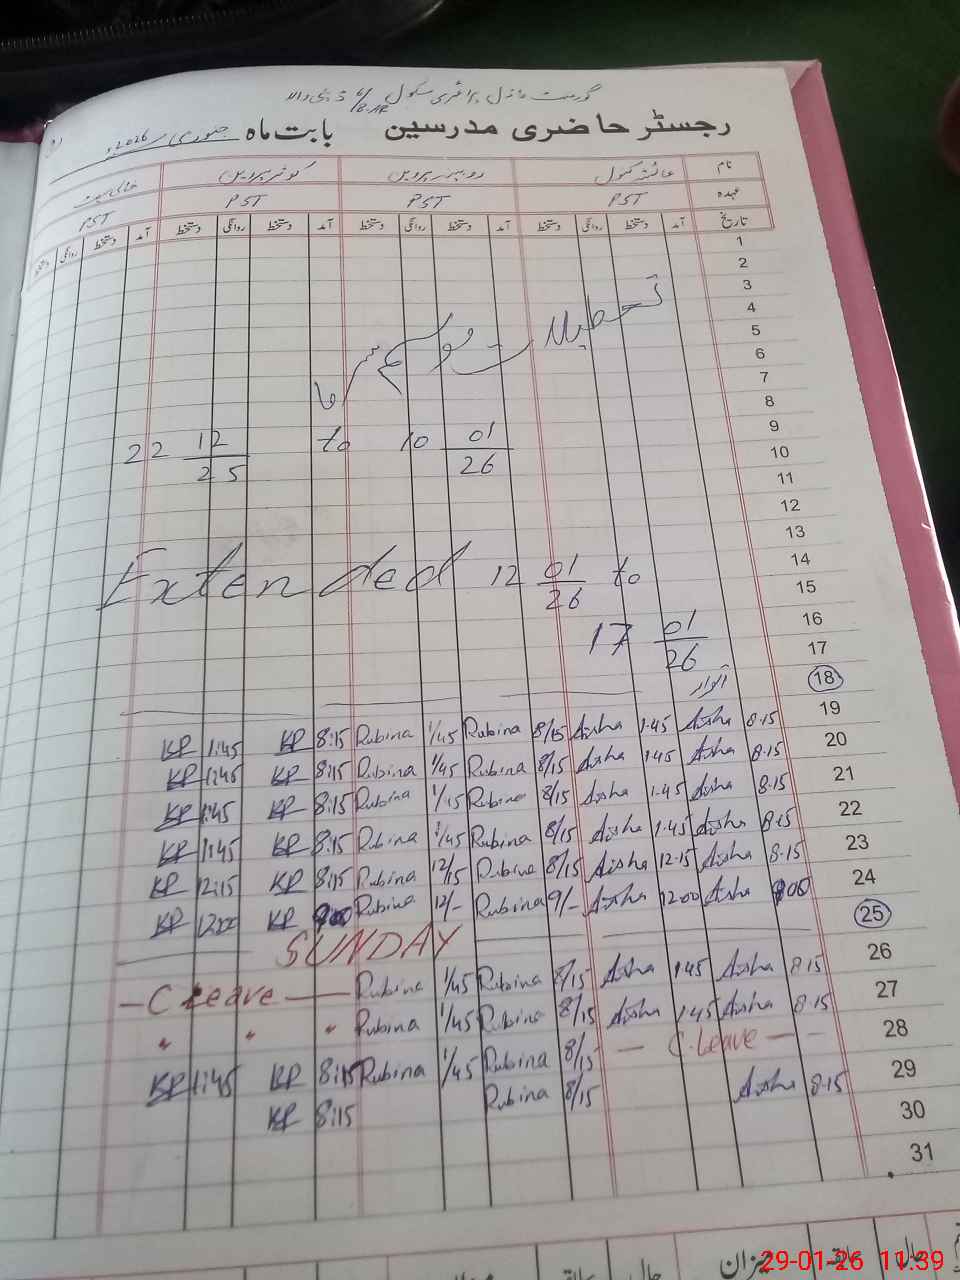 گورنمنٹ ماڈل پرائمری سکول 6/8-AR ڈبی والا
رجسٹر حاضری مدرسین بابت ماہ جنوری 2026ء
نام عائشہ کنول روبینہ پروین کوثر پروین خالی سیٹ
عہدہ PST PST PST PST
تاریخ آمد دستخط روانگی دستخط آمد دستخط روانگی دستخط آمد دستخط روانگی دستخط آمد دستخط روانگی دستخط
1
2
3
4
تعطیلات موسم سرما
5
6
7
8
9
22 12/25 to 10 01/26
10
11
12
13
14
Extended 12 01/26 to
15
16
17 01/26
17
18 اتوار
KP 1:45 KP 8:15 Rubina 1/45 Rubina 8/15 Aisha 1.45 Aisha 8.15 19
KP 1:45 KP 8:15 Rubina 1/45 Rubina 8/15 Aisha 1.45 Aisha 8.15 20
KP 1:45 KP 8:15 Rubina 1/45 Rubina 8/15 Aisha 1.45 Aisha 8.15 21
KP 1:45 KP 8:15 Rubina 1/45 Rubina 8/15 Aisha 1.45 Aisha 8.15 22
KP 12:15 KP 8:15 Rubina 12/15 Rubina 8/15 Aisha 12.15 Aisha 8.15 23
KP 12:00 KP 9:00 Rubina 12/- Rubina 9/- Aisha 12.00 Aisha 9.00 24
SUNDAY 25
C Leave Rubina 1/45 Rubina 8/15 Aisha 1.45 Aisha 8.15 26
" " " Rubina 1/45 Rubina 8/15 Aisha 1.45 Aisha 8.15 27
KP 1:45 KP 8:15 Rubina 1/45 Rubina 8/15 C.Leave 28
KP 8:15 Rubina 8/15 Aisha 8.15 29
30
31
میزان سابقہ حال
29-01-26 11:39